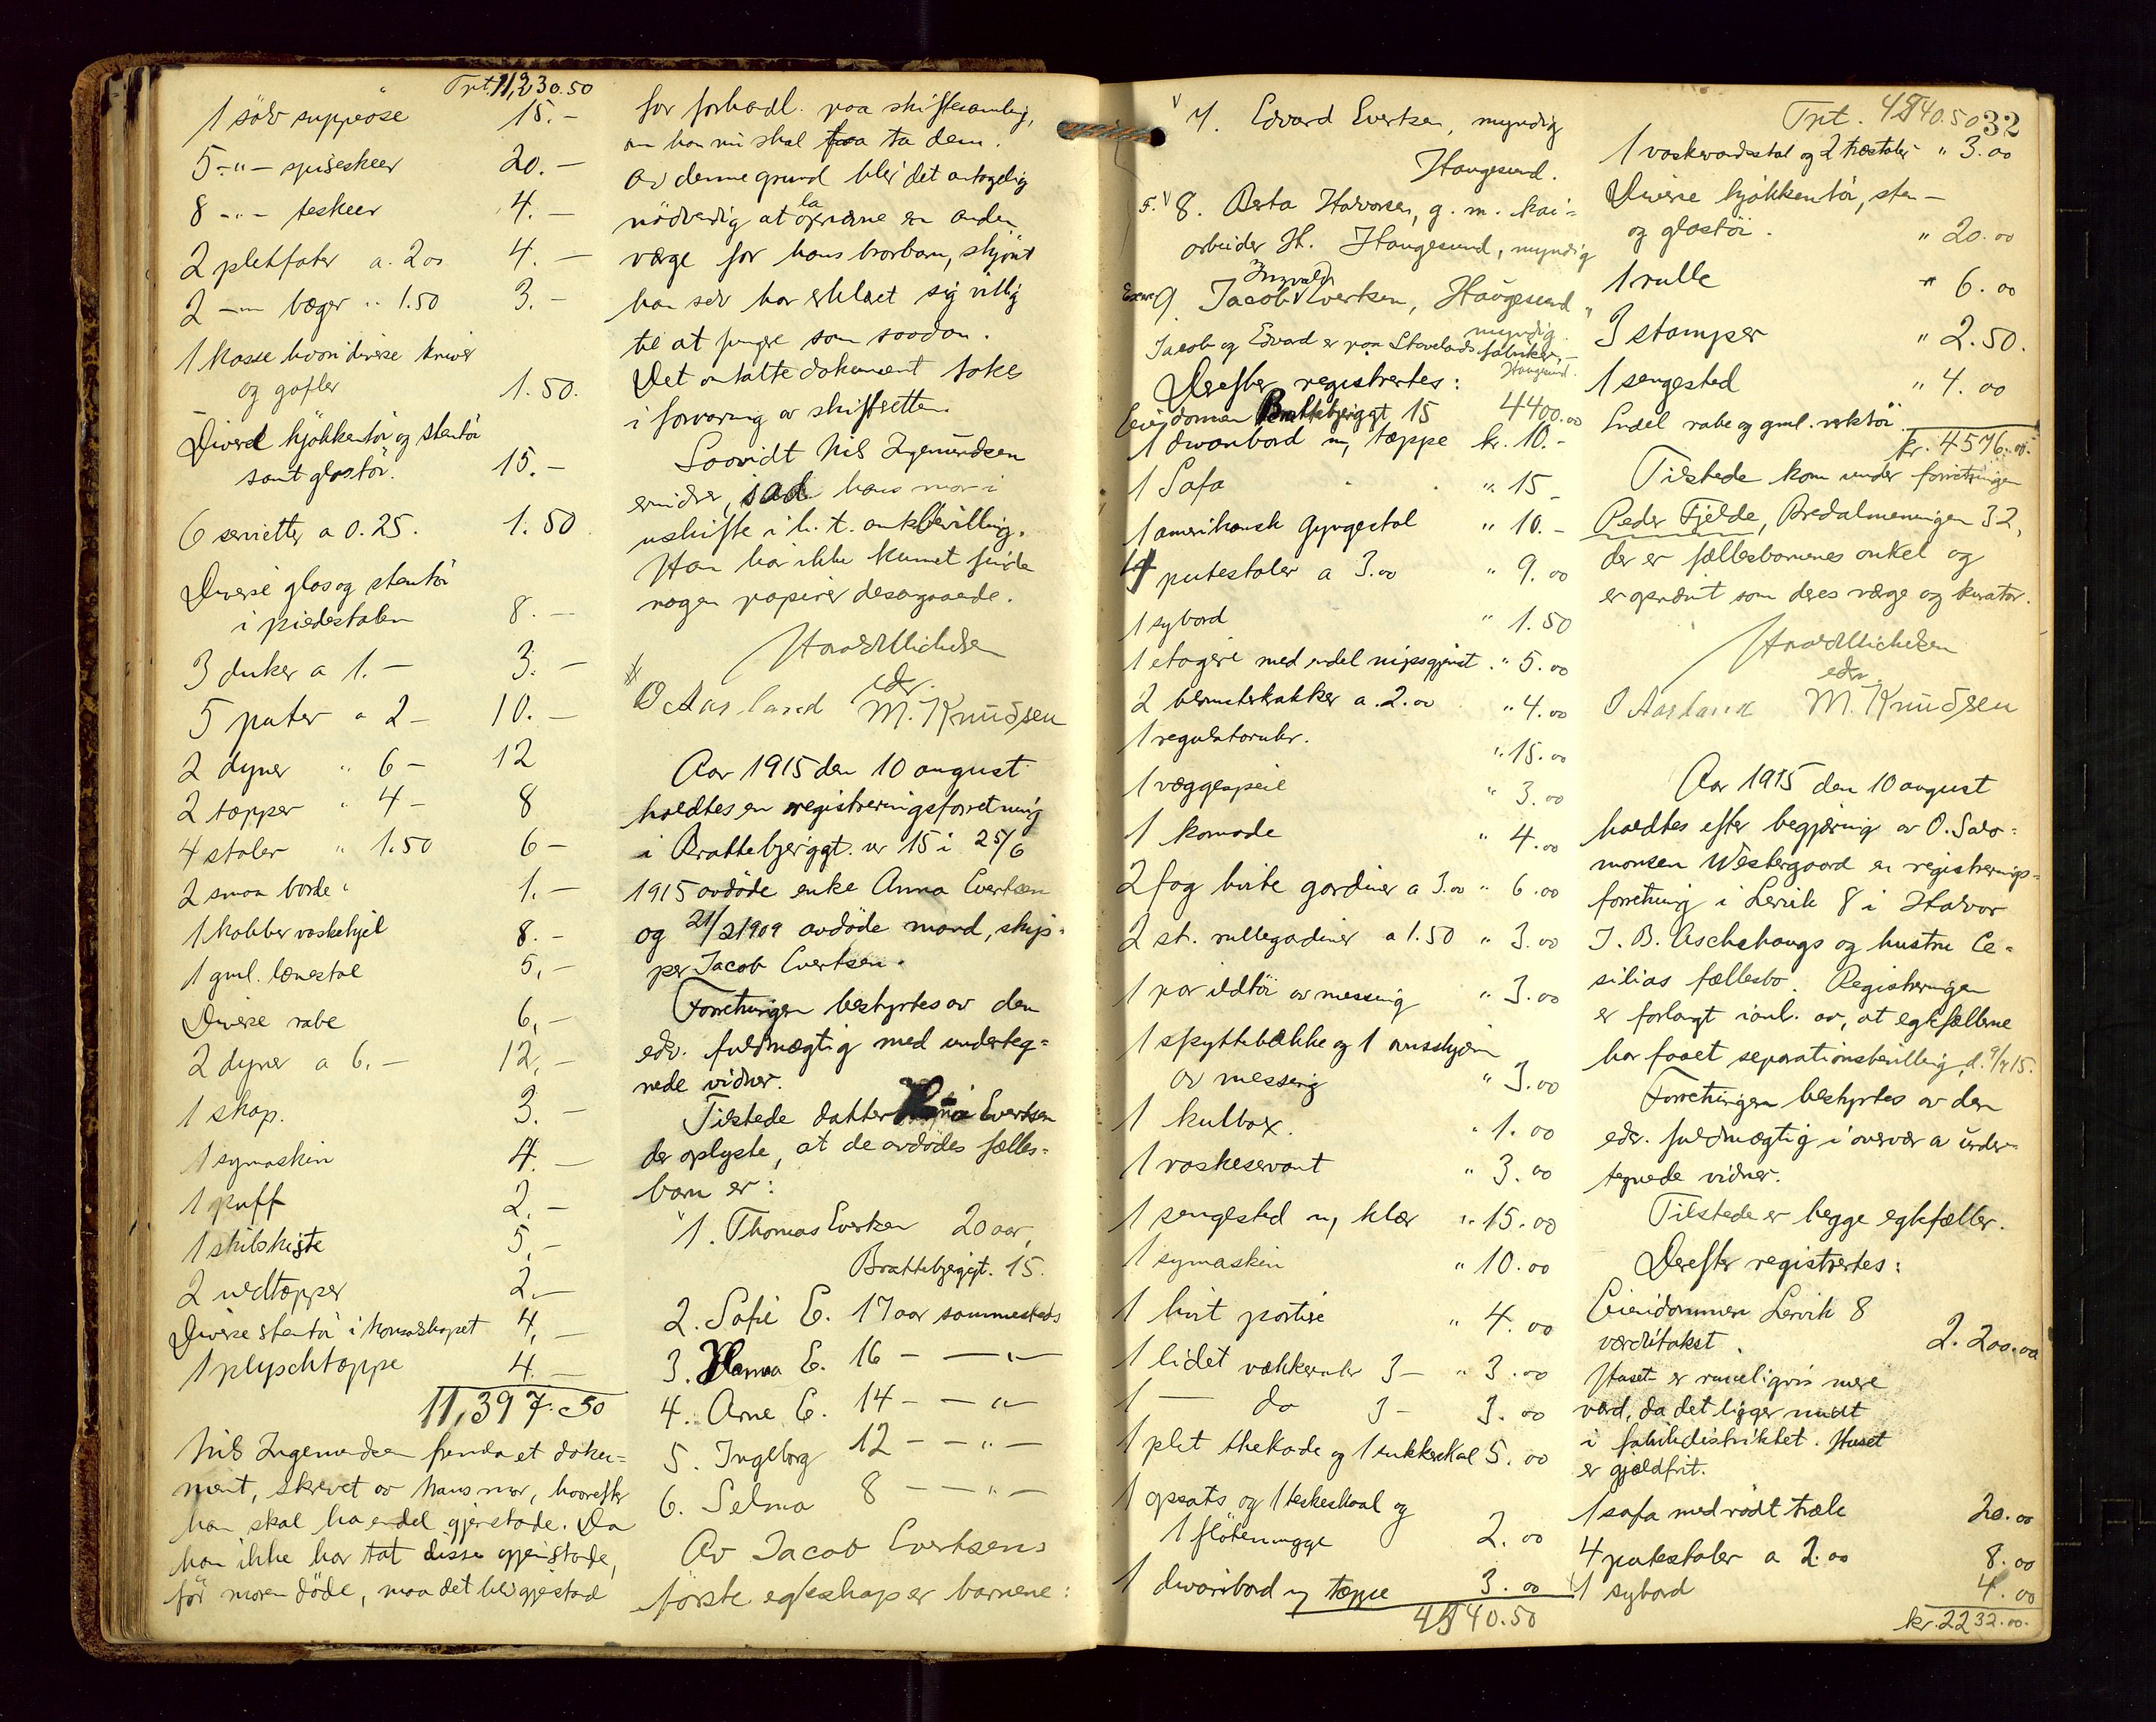 Trpt. 11,230.50
1 sölv suppeöse 15.-
5 -"- spiseskeer 20.-
8 -"- teskeer 4.-
2 pletfater a. 2 00 4.-
2 -"- bæger " 1.50 3.-
1 kasse hvori diverse kniver
og gafler 1.50.
Diverse kjökkentöi og stentöi
samt glastöi. 15.-
6 servietter a 0.25. 1.50
Diverse glas og stentöi
i piedestalen 8.-
3 duker a 1.- 3.-
5 puter a 2- 10.-
2 dyner " 6- 12
2 tæpper " 4- 8
4 stoler " 1.50 6-
2 smaa borde " 1.-
1 kobber vaskekjel 8.-
1 gml. lænestol 5,-
Diverse rabe 6,-
2 dyner a 6.- 12,-
1 skap. 3.-
1 symaskin 4.-
1 puff 2.-
1 skibskiste 5,-
2 uldtæpper 2.-
Diverse stentöi i 4,-
1 plyschtæppe 4.-
11,397.50
Nils Ingemundsen fandt et doku-
ment, skrevet av hans mor, hvorefter
han skal ha endel gjenstade. Da
han ikke har tat disse gjenstade,
för moren döde, maa det bli gjenstad
for forhandl. paa skiftesamling,
om han nu skal faa ta dem.
Av denne grund blir det antagelig
nödvendig at la opnævne en anden
værge for hans brorbarn, skjönt
han selv har erklæret sig villig
til at fungere som saadan.
Det omtalte dokument tokes
i forvaring av skifteretten.
Saavidt Nils Ingemundsen
erindrer, sad hans mor i
uskifte i h. t. enkebevilling.
Han har ikke kunnet finde
nogen papirer desangaaende.
Harald Michelsen
edv.
O Aarland M. Knudsen
Aar 1915 den 10 august
holdtes en registreringsforretning
i Brattebjerggt. nr 15 i 25/6
1915 avdöde enke Anna Evertsen
og 21/2 1909 avdöde mand, skip-
per Jacob Evertsen.
Forretningen bestyrtes av den
edv. fuldmægtig med underteg-
nede vidner.
Tilstede datter Evertsen
der oplyste, at de avdödes fælles-
barn er:
1. Thomas Evertsen 20 aar,
Brattebjerggt. 15.
2. Sofie E. 17 aar sammesteds
3. Hanna E. 16 - - " -
4. Arne E. 14 - - " -
5. Ingeborg 12 - - " -
6. Selma 8 - - " -
Av Jacob Evertsens
förste egteskap er barnene:
7. Edvard Evertsen, myndig
Haugesund.
8. Berta Halvorsen, g. m. kai-
arbeider H. Haugesund, myndig
9. Jacob Ingvald Evertsen, Haugesund
myndig.
Jacob og Edvard er paa Stavelands fabriker,
Haugesund.
Derefter registrertes:
Eiendommen Brattebjerggt 15 4400.00
1 divanbord m, tæppe kr. 10.-
1 Sofa " 15 -
1 amerikansk gyngestol " 10.-
4 putestoler a 3.00 " 9.00
1 sybord " 1.50
1 etagere med endel nipsgjenst. " 5.00
2 blomsterkrakker a. 2.00 " 4.00
1 regulatoruhr. " 15.00
1 væggespeil " 3.00
1 komode " 4.00
2 fag hvite gardiner a 3.00 " 6.00
2 st. rullegardiner a 1.50 " 3.00
1 par ildtöi av messing " 3.00
1 spyttebakke og 1 ovnsskjærm
av messing " 3.00
1 kulbox. " 1.00
1 vaskeservant " 3.00
1 sengested m, klær " 15.00
1 symaskin " 10.00
1 hvit portiere " 4.00
1 lidet vækkeruhr 3- " 3.00
1 - do 3- 3.00
1 plet thekade og 1 sukkerskal 5.00
1 opsats og 1 keksskaal og
1 flötemugge 2.00
1 divanbord m, tæppe 3.00
4540.50
Trpt. 4540.50 32
1 vaskevandsstol og 2 træstoler " 3.00
Diverse kjökkentöi, sten-
og glastöi. " 20.00
1 rulle " 6.00
3 stamper " 2.50.
1 sengested " 4.00
Endel rabe og gml. rektöi.
kr. 4576.00
Tilstede kom under forretningen
Peder Fjelde, Bredalmenningen 32,
der er fællesbarnenes onkel og
er opnævnt som deres værge og kurator.
Harald Michelsen
edv.
O Aarland M. Knudsen
Aar 1915 den 10 august
holdtes efter begjæring av O. Salo-
monsen Westergaard en registrerings-
forretning i Lervik 8 i Halvor
J. B. Aschehougs og hustru Ce-
silias fællesbo. Registreringen
er forlangt i anl. av, at egtefællerne
har faaet separationsbevilling d. 9/7 15.
Forretningen bestyrtes av den
edv. fuldmægtig i overvær a under-
tegnede vidner.
Tilstede er begge egtefæller.
Derefter registrertes:
Eiendommen Lervik 8
værditakst. 2.200.00
Huset er rimeligvis mere
værd, da det ligger midt
i fabrikdistriktet. Huset
er gjældfrit.
1 sofa med rödt træk 20.00
4 putestoler a 2.00 8.00
1 sybord 4.00
kr. 2232.00.